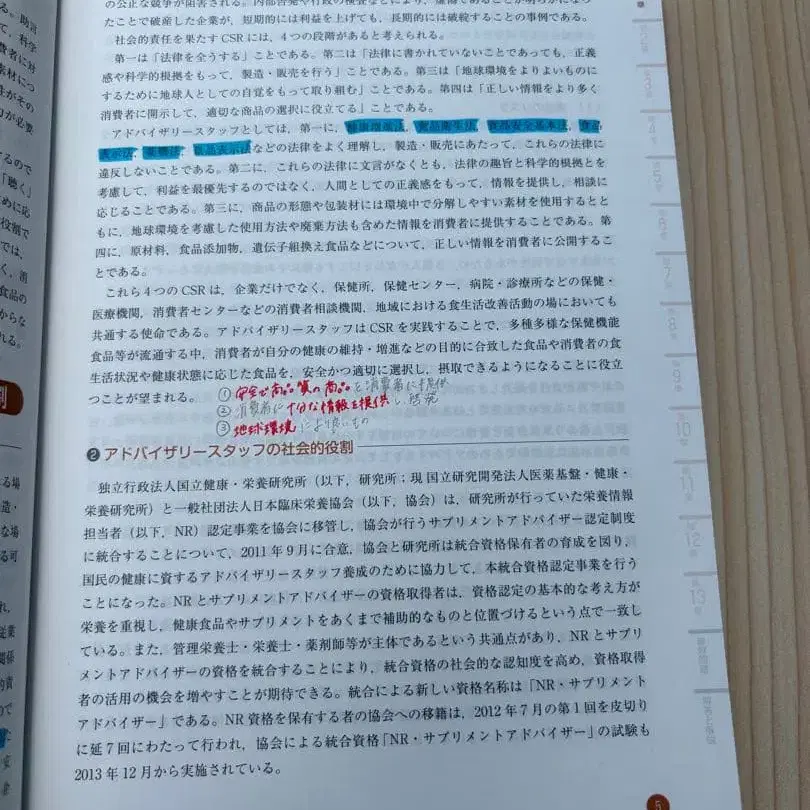 の公正な競争が阻害される。内部告発や行政の検査などにより、
たことで破産した企業が、短期的には利益を上げても、長期的には破綻することの事例である。
社会的責任を果たすCSRには、4つの段階があると考えられる。
第一は「法律を全うする」ことである。第二は「法律に書かれていないことであっても、正義
感や科学的根拠をもって、製造・販売を行う」ことである。第三は「地球環境をよりよいものに
するために地球人としての自覚をもって取り組む」ことである。第四は「正しい情報をより多く
消費者に開示して、適切な商品の選択に役立てる」ことである。
アドバイザリースタッフとしては、第一に、健康増進法、食品衛生法、食品安全基本法、食品
表示法、薬機法、景品表示法などの法律をよく理解し、製造・販売にあたって、これらの法律に
違反しないことである。第二に、これらの法律に文言がなくとも、法律の趣旨と科学的根拠とを
考慮して、利益を最優先するのではなく、人間としての正義感をもって、情報を提供し、相談に
応じることである。第三に、商品の形態や包装材には環境中で分解しやすい素材を使用するとと
もに、地球環境を考慮した使用方法や廃棄方法も含めた情報を消費者に提供することである。第
四に、原材料、食品添加物、遺伝子組換え食品などについて、正しい情報を消費者に公開するこ
とである。
これら4つのCSRは、企業だけでなく、保健所、保健センター、病院・診療所などの保健・
医療機関、消費者センターなどの消費者相談機関、地域における食生活改善活動の場においても
共通する使命である。アドバイザリースタッフはCSRを実践することで、多種多様な保健機能
食品等が流通する中、消費者が自分の健康の維持・増進などの目的に合致した食品や消費者の食
生活状況や健康状態に応じた食品を、安全かつ適切に選択し、摂取できるようになることに役立
つことが望まれる。
① 安全で高品質の商品を消費者に提供
② 消費者に十分な情報を提供し、啓発
③ 地球環境により良いもの
❷ アドバイザリースタッフの社会的役割
独立行政法人国立健康・栄養研究所（以下、研究所；現 国立研究開発法人医薬基盤・健康・
栄養研究所）と一般社団法人日本臨床栄養協会（以下、協会）は、研究所が行っていた栄養情報
担当者（以下、NR）認定事業を協会に移管し、協会が行うサプリメントアドバイザー認定制度
に統合することについて、2011年9月に合意、協会と研究所は統合資格保有者の育成を図り、
国民の健康に資するアドバイザリースタッフ養成のために協力して、本統合資格認定事業を行う
ことになった。NRとサプリメントアドバイザーの資格取得者は、資格認定の基本的な考え方が
栄養を重視し、健康食品やサプリメントをあくまで補助的なものと位置づけるという点で一致し
ている。また、管理栄養士・栄養士・薬剤師等が主体であるという共通点があり、NRとサプリ
メントアドバイザーの資格を統合することにより、統合資格の社会的な認知度を高め、資格取得
者の活用の機会を増やすことが期待できる。統合による新しい資格名称は「NR・サプリメント
アドバイザー」である。NR資格を保有する者の協会への移籍は、2012年7月の第1回を皮切り
に延7回にわたって行われ、協会による統合資格「NR・サプリメントアドバイザー」の試験も
2013年12月から実施されている。
5